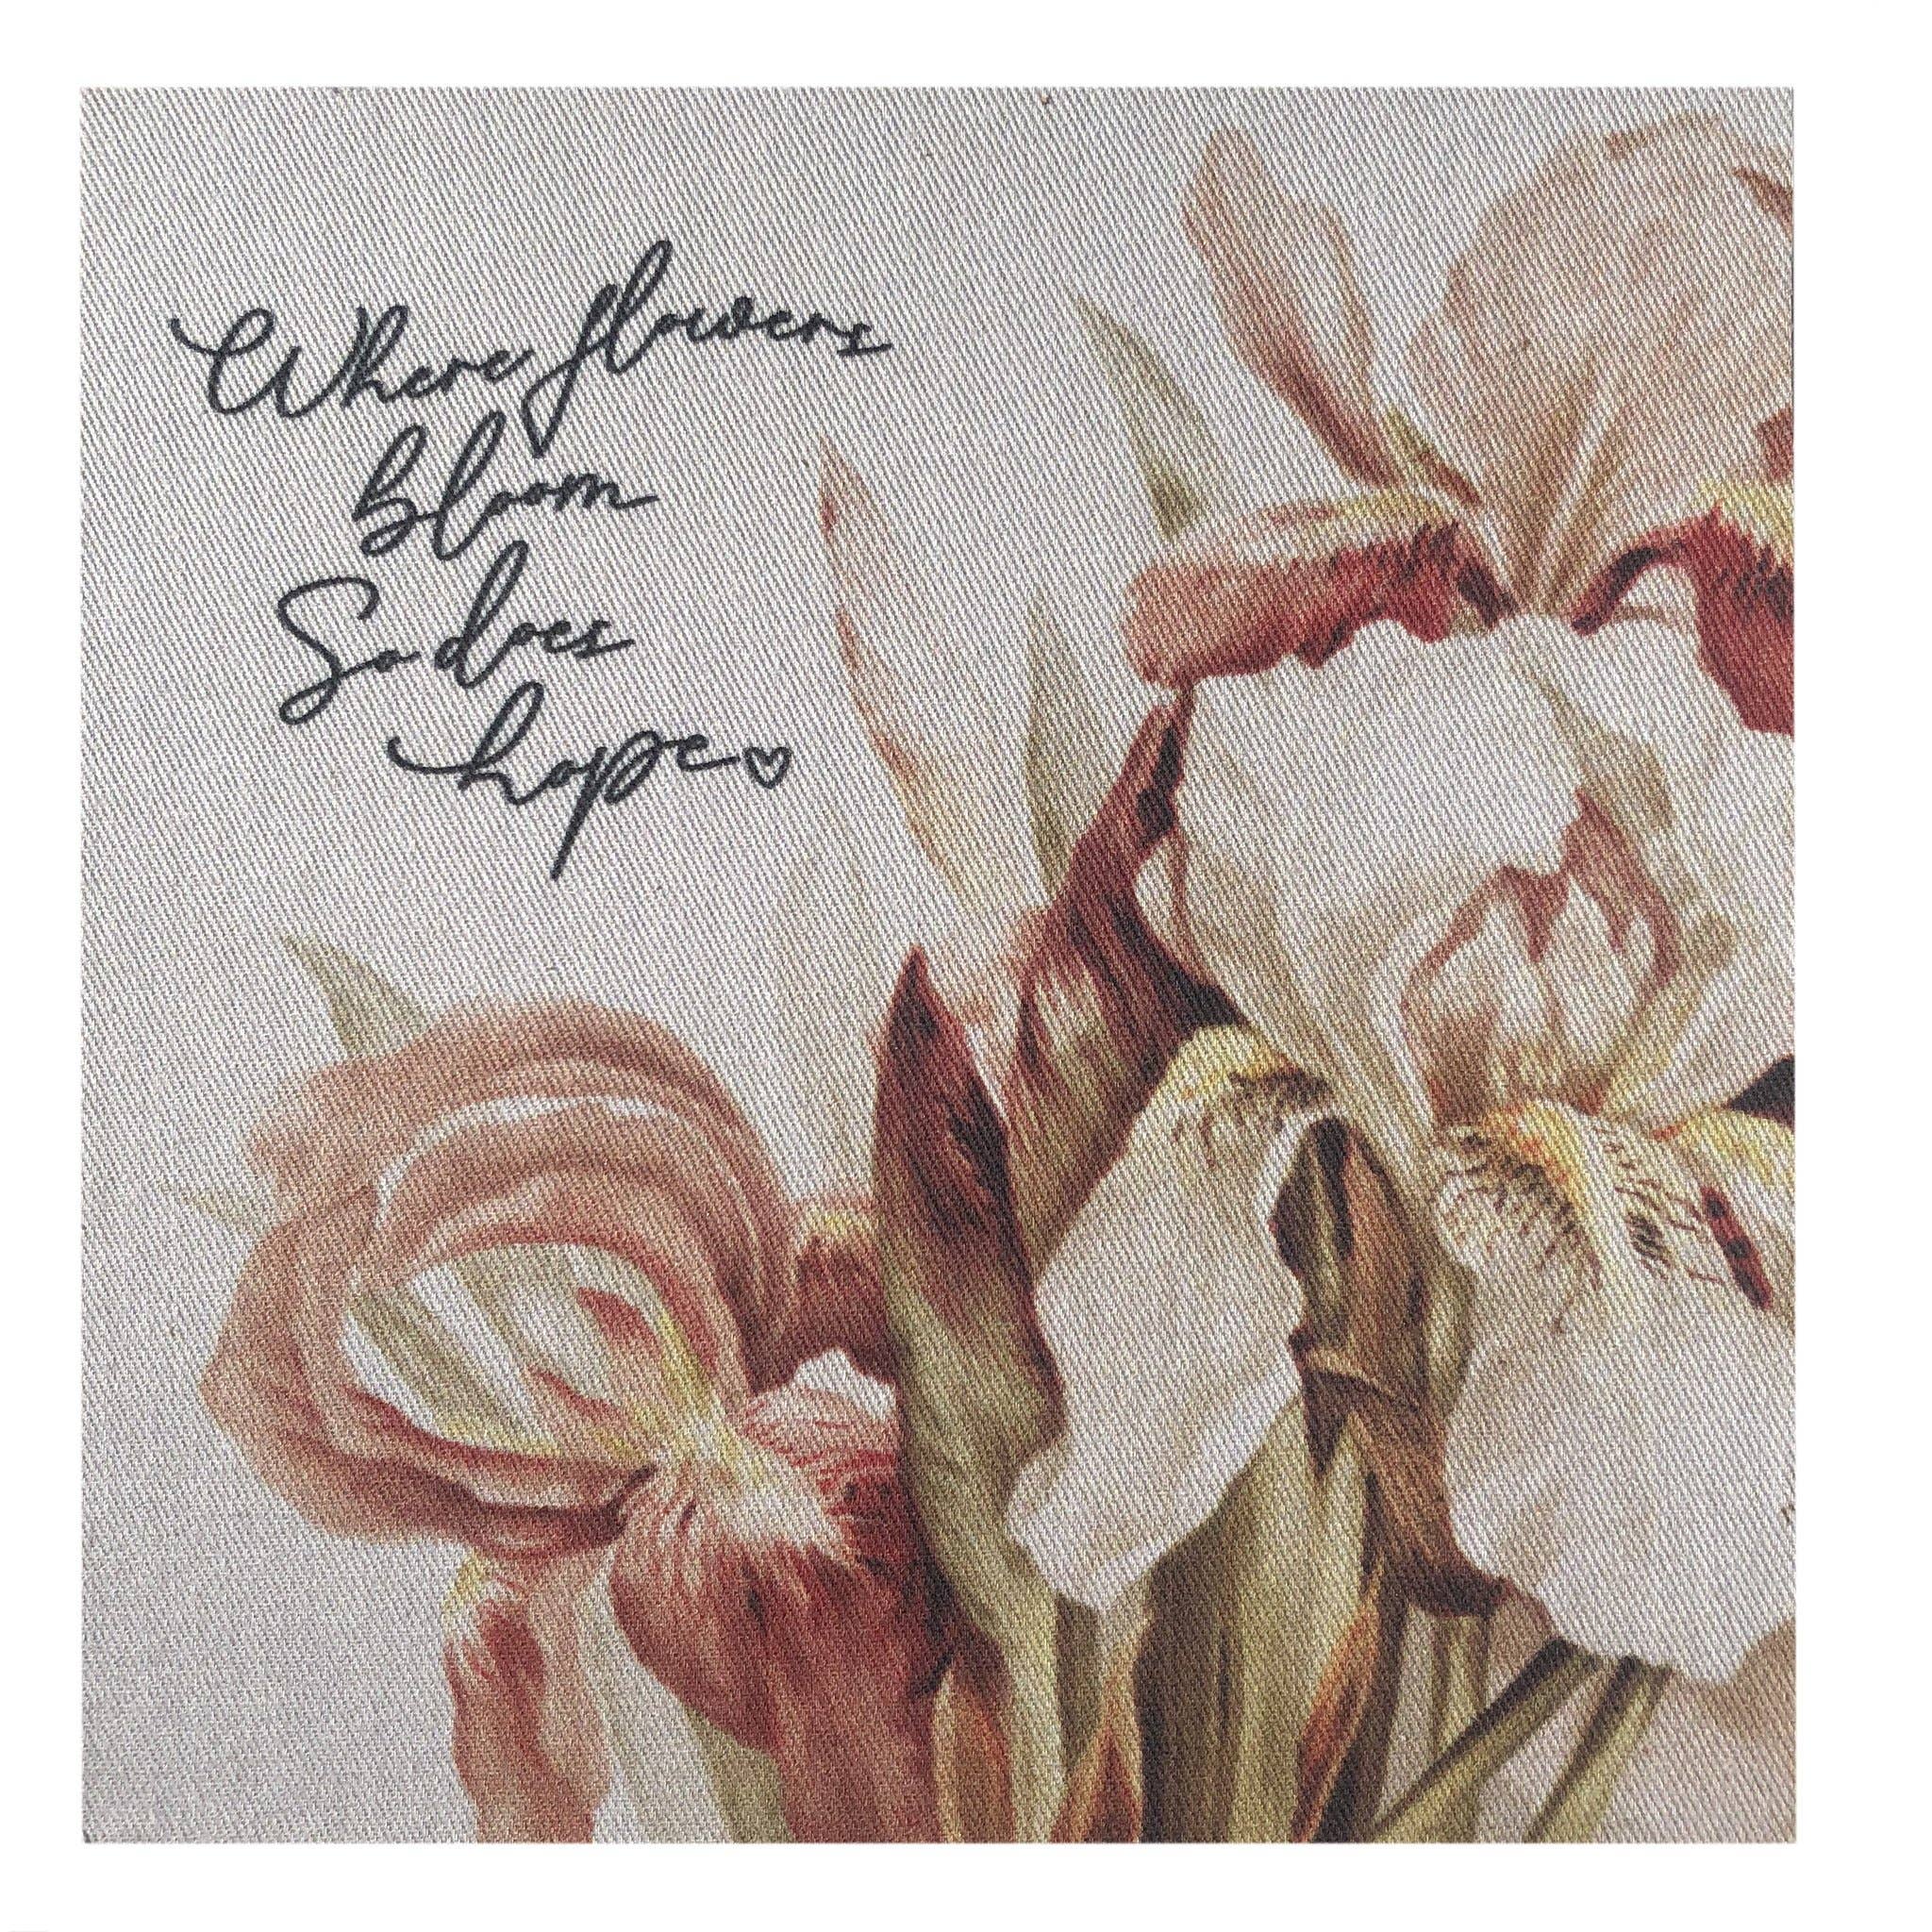 Where flowers
bloom
So does
hope